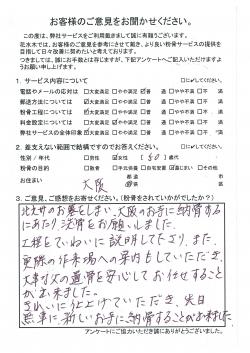 お客様のご意見をお聞かせください。
この度は、弊社サービスをご利用戴きまして誠に有難うございます。
花水木では、お客様のご意見を参考にさせて戴き、より良い粉骨サービスの提供を
目指して日々改善に努めたいと考えております。
つきましては、誠にお手数とは存じますが、下記アンケートへご記入いただけますよう
お願い申し上げます。
1. サービス内容について
電話やメールの応対は 大変満足 やや満足 普通 やや不満 不満
郵送方法について 大変満足 やや満足 普通 やや不満 不満
粉骨工程について 大変満足 やや満足 普通 やや不満 不満
料金設定について 大変満足 やや満足 普通 やや不満 不満
弊社サービスの全体印象 大変満足 やや満足 普通 やや不満 不満
2. 差支えない範囲で結構ですのでお答えください。
性別/年代 男性 女性 歳代
粉骨の目的 散骨 自宅安置 墓じまい その他
お住まい 大阪
3. ご意見、ご感想をお寄せください。(粉骨をされていかがでしたか?)
お墓をしまい、大阪のお寺に納骨する
にあたり、洗骨をお願いしました。
工程をていねいに説明して下さり、また、
実際の作業場への案内もしていただき、
大事な父の遺骨を安心してお任せすることが
出来ました。
きれいに仕上げていただき、先日
無事に新しいお寺に納骨することが出来ました
アンケートにご協力いただき誠にありがとうございました。